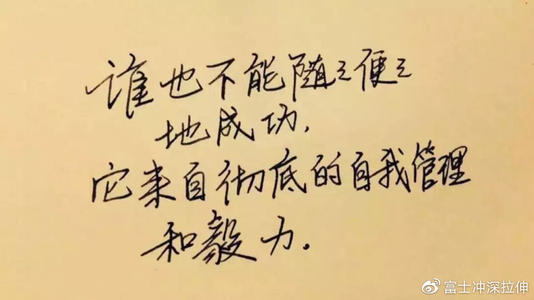 谁也不能随〻便〻
地成功,
它来自彻底的自我管理
和毅力.
@富士冲深拉伸